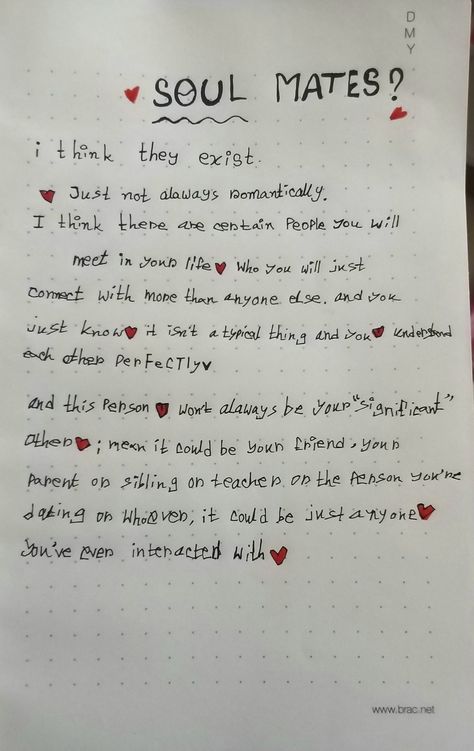 D
M
Y
SOUL MATES?
i think they exist.
Just not alaways Romantically.
I think there are certain People you will
meet in your life who you will just
connect with more than anyone else. and you
just know it isn't a typical thing and you understand
each other PerFeCTly
and this Person won't alaways be your "significant"
other; mean it could be your friend, your
parent or sibling or teacher or the Person you're
dating or whoever, it could be just anyone
you've ever interacted with
www.brac.net